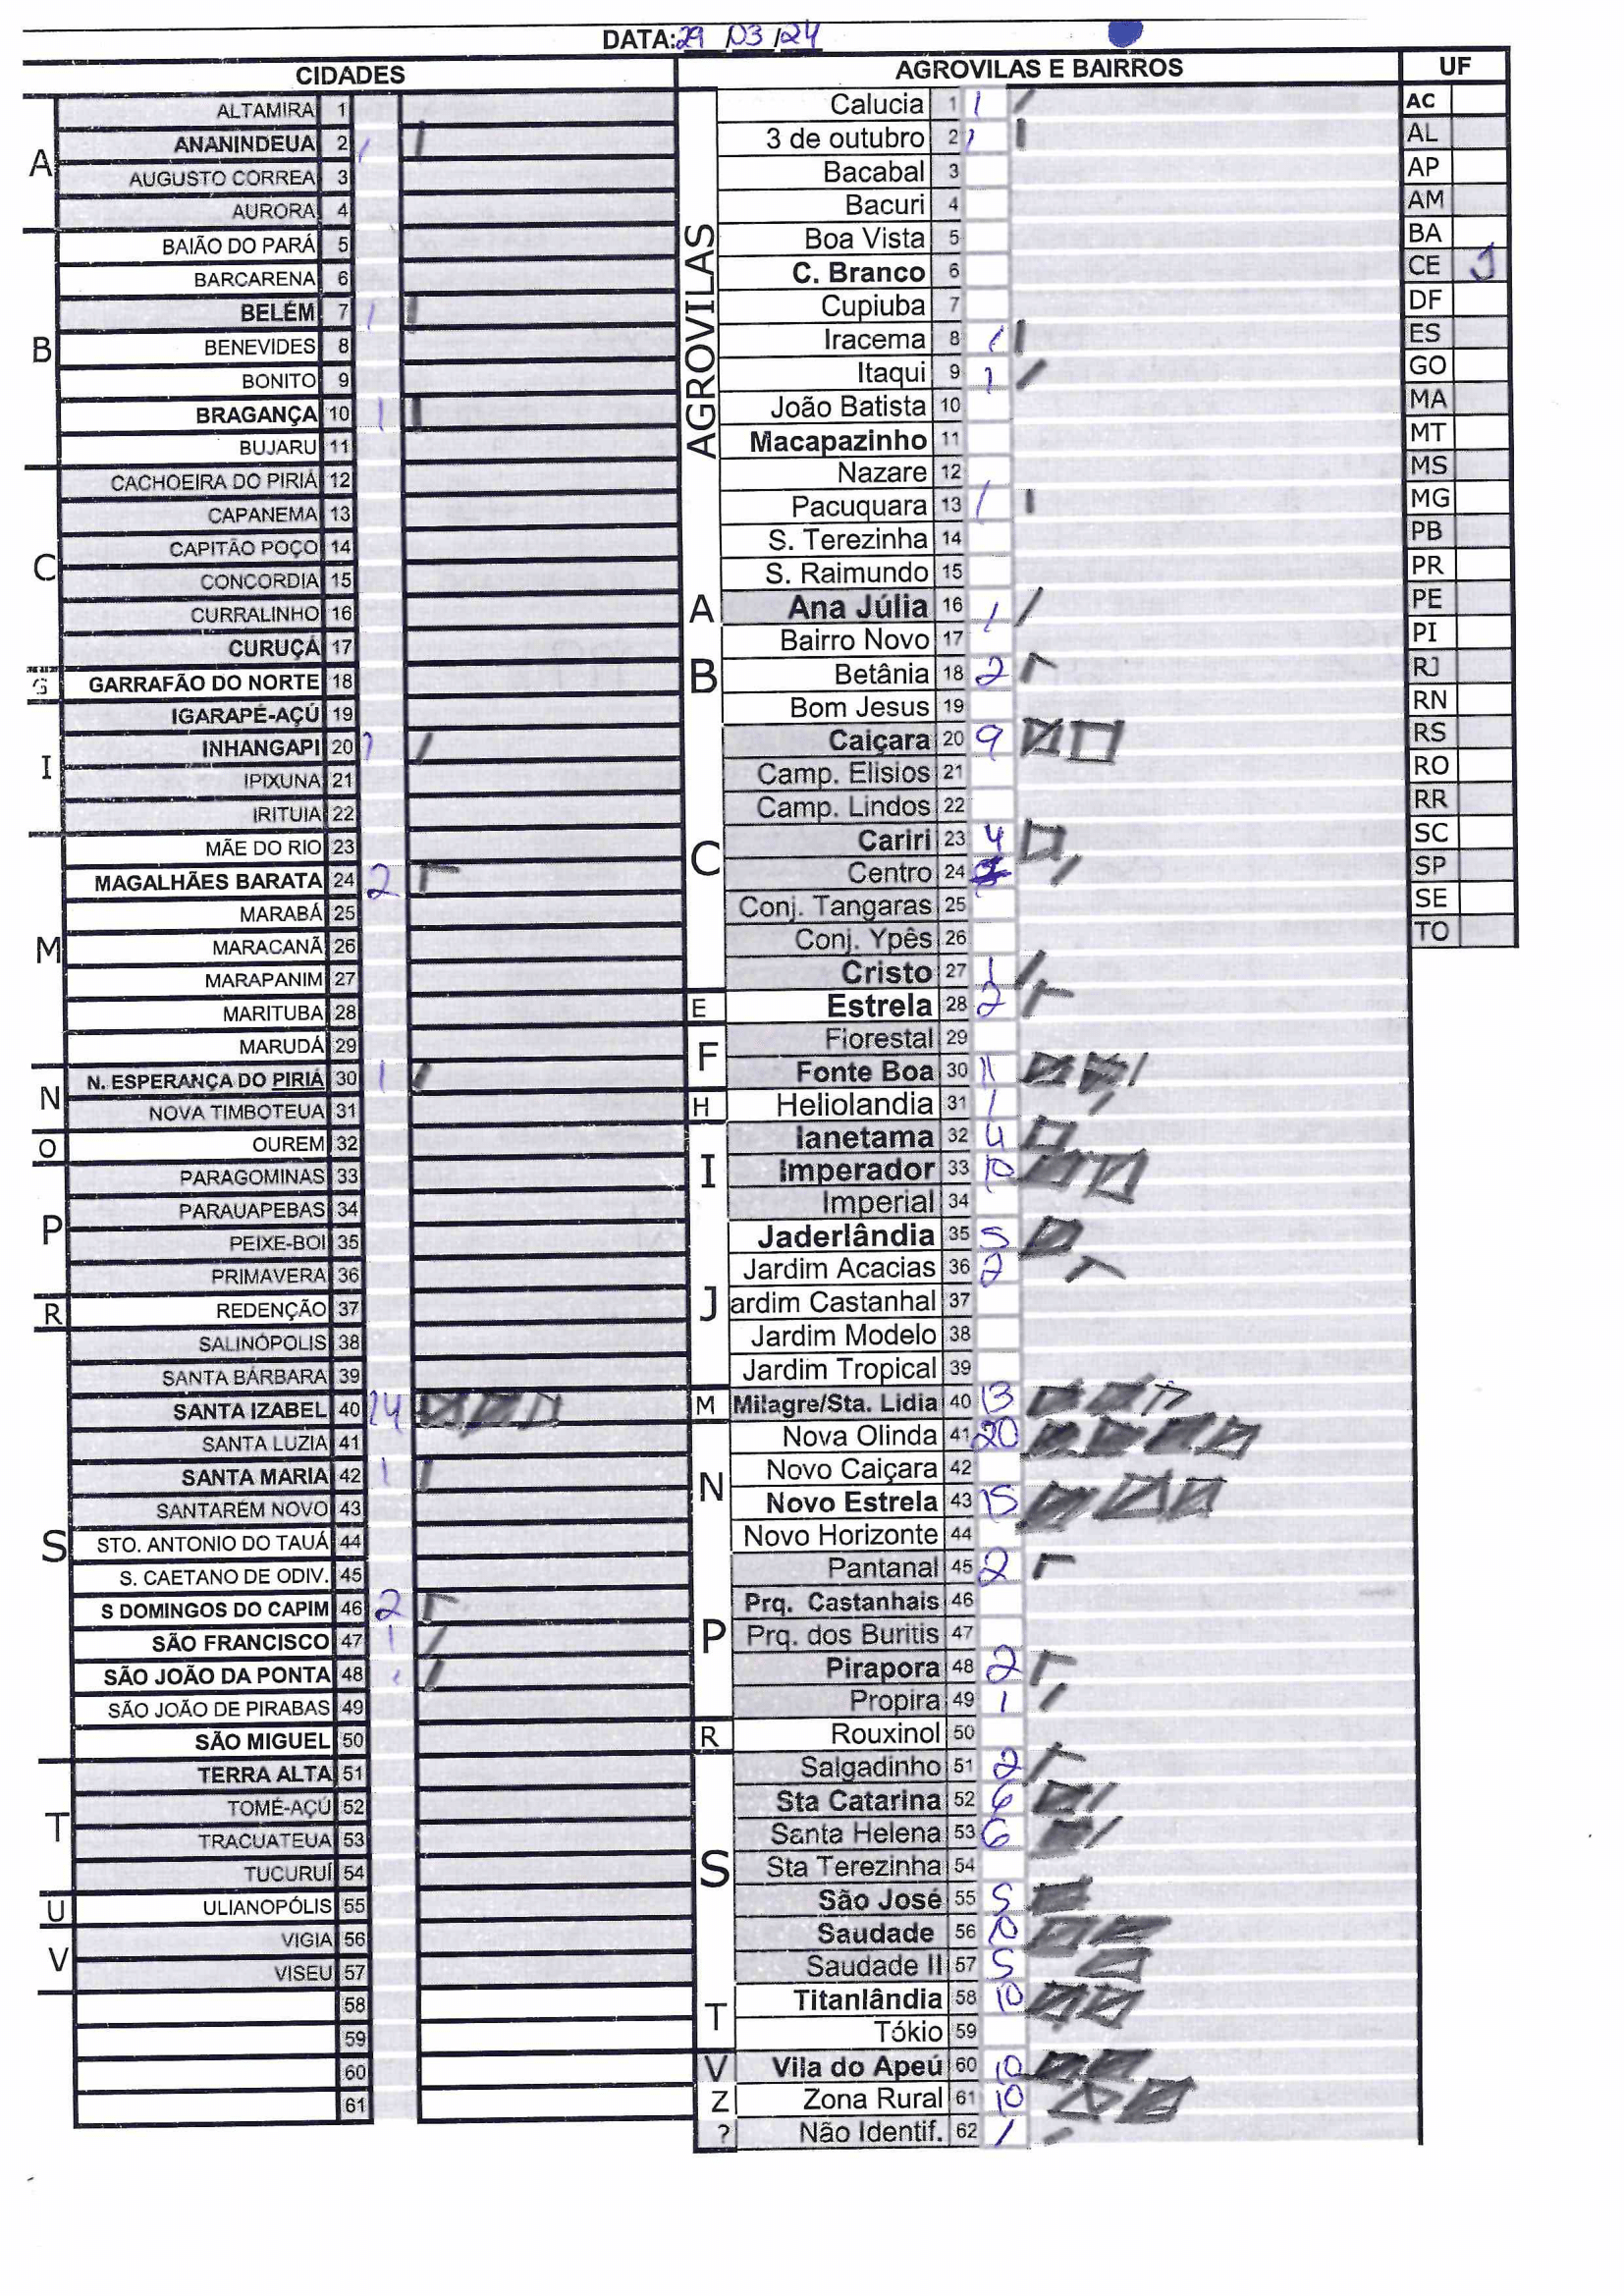 DATA: 29 /03 /24
CIDADES
A
ALTAMIRA 1
ANANINDEUA 2 1
AUGUSTO CORREA 3
AURORA 4
B
BAIÃO DO PARÁ 5
BARCARENA 6
BELÉM 7 1
BENEVIDES 8
BONITO 9
BRAGANÇA 10 1
BUJARU 11
C
CACHOEIRA DO PIRIÁ 12
CAPANEMA 13
CAPITÃO POÇO 14
CONCORDIA 15
CURRALINHO 16
CURUÇÁ 17
G
GARRAFÃO DO NORTE 18
I
IGARAPÉ-AÇÚ 19
INHANGAPI 20 1
IPIXUNA 21
IRITUIA 22
M
MÃE DO RIO 23
MAGALHÃES BARATA 24 2
MARABÁ 25
MARACANÃ 26
MARAPANIM 27
MARITUBA 28
MARUDÁ 29
N
N. ESPERANÇA DO PIRIÁ 30 1
NOVA TIMBOTEUA 31
O
OUREM 32
P
PARAGOMINAS 33
PARAUAPEBAS 34
PEIXE-BOI 35
PRIMAVERA 36
R
REDENÇÃO 37
S
SALINÓPOLIS 38
SANTA BÁRBARA 39
SANTA IZABEL 40 14
SANTA LUZIA 41
SANTA MARIA 42 1
SANTARÉM NOVO 43
STO. ANTONIO DO TAUÁ 44
S. CAETANO DE ODIV. 45
S DOMINGOS DO CAPIM 46 2
SÃO FRANCISCO 47 1
SÃO JOÃO DA PONTA 48 1
SÃO JOÃO DE PIRABAS 49
SÃO MIGUEL 50
T
TERRA ALTA 51
TOMÉ-AÇÚ 52
TRACUATEUA 53
TUCURUÍ 54
U
ULIANOPÓLIS 55
V
VIGIA 56
VISEU 57
58
59
60
61
AGROVILAS E BAIRROS
AGROVILAS
Calucia 1 1
3 de outubro 2 1
Bacabal 3
Bacuri 4
Boa Vista 5
C. Branco 6
Cupiuba 7
Iracema 8 1
Itaqui 9 1
João Batista 10
Macapazinho 11
Nazare 12
Pacuquara 13 1
S. Terezinha 14
S. Raimundo 15
A
Ana Júlia 16 1
B
Bairro Novo 17
Betânia 18 2
Bom Jesus 19
C
Caiçara 20 9
Camp. Elisios 21
Camp. Lindos 22
Cariri 23 4
Centro 24
Conj. Tangaras 25
Conj. Ypês 26
Cristo 27 1
E
Estrela 28 2
F
Florestal 29
Fonte Boa 30 11
H
Heliolandia 31 1
I
Ianetama 32 4
Imperador 33 10
Imperial 34
J
Jaderlândia 35 5
Jardim Acacias 36 2
ardim Castanhal 37
Jardim Modelo 38
Jardim Tropical 39
M
Milagre/Sta. Lidia 40 13
N
Nova Olinda 41 20
Novo Caiçara 42
Novo Estrela 43 15
Novo Horizonte 44
P
Pantanal 45 2
Prq. Castanhais 46
Prq. dos Buritis 47
Pirapora 48 2
Propira 49 1
R
Rouxinol 50
S
Salgadinho 51 2
Sta Catarina 52 6
Santa Helena 53 6
Sta Terezinha 54
São José 55 5
Saudade 56 10
Saudade II 57 5
T
Titanlândia 58 10
Tókio 59
V
Vila do Apeú 60 10
Z
Zona Rural 61 10
?
Não Identif. 62 1
UF
AC
AL
AP
AM
BA
CE 1
DF
ES
GO
MA
MT
MS
MG
PB
PR
PE
PI
RJ
RN
RS
RO
RR
SC
SP
SE
TO